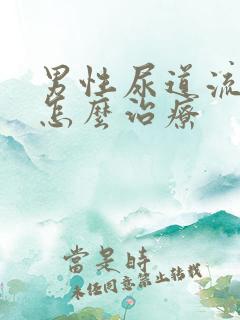 男性尿道流
怎麼治療
當是時
未任同意禁止转载